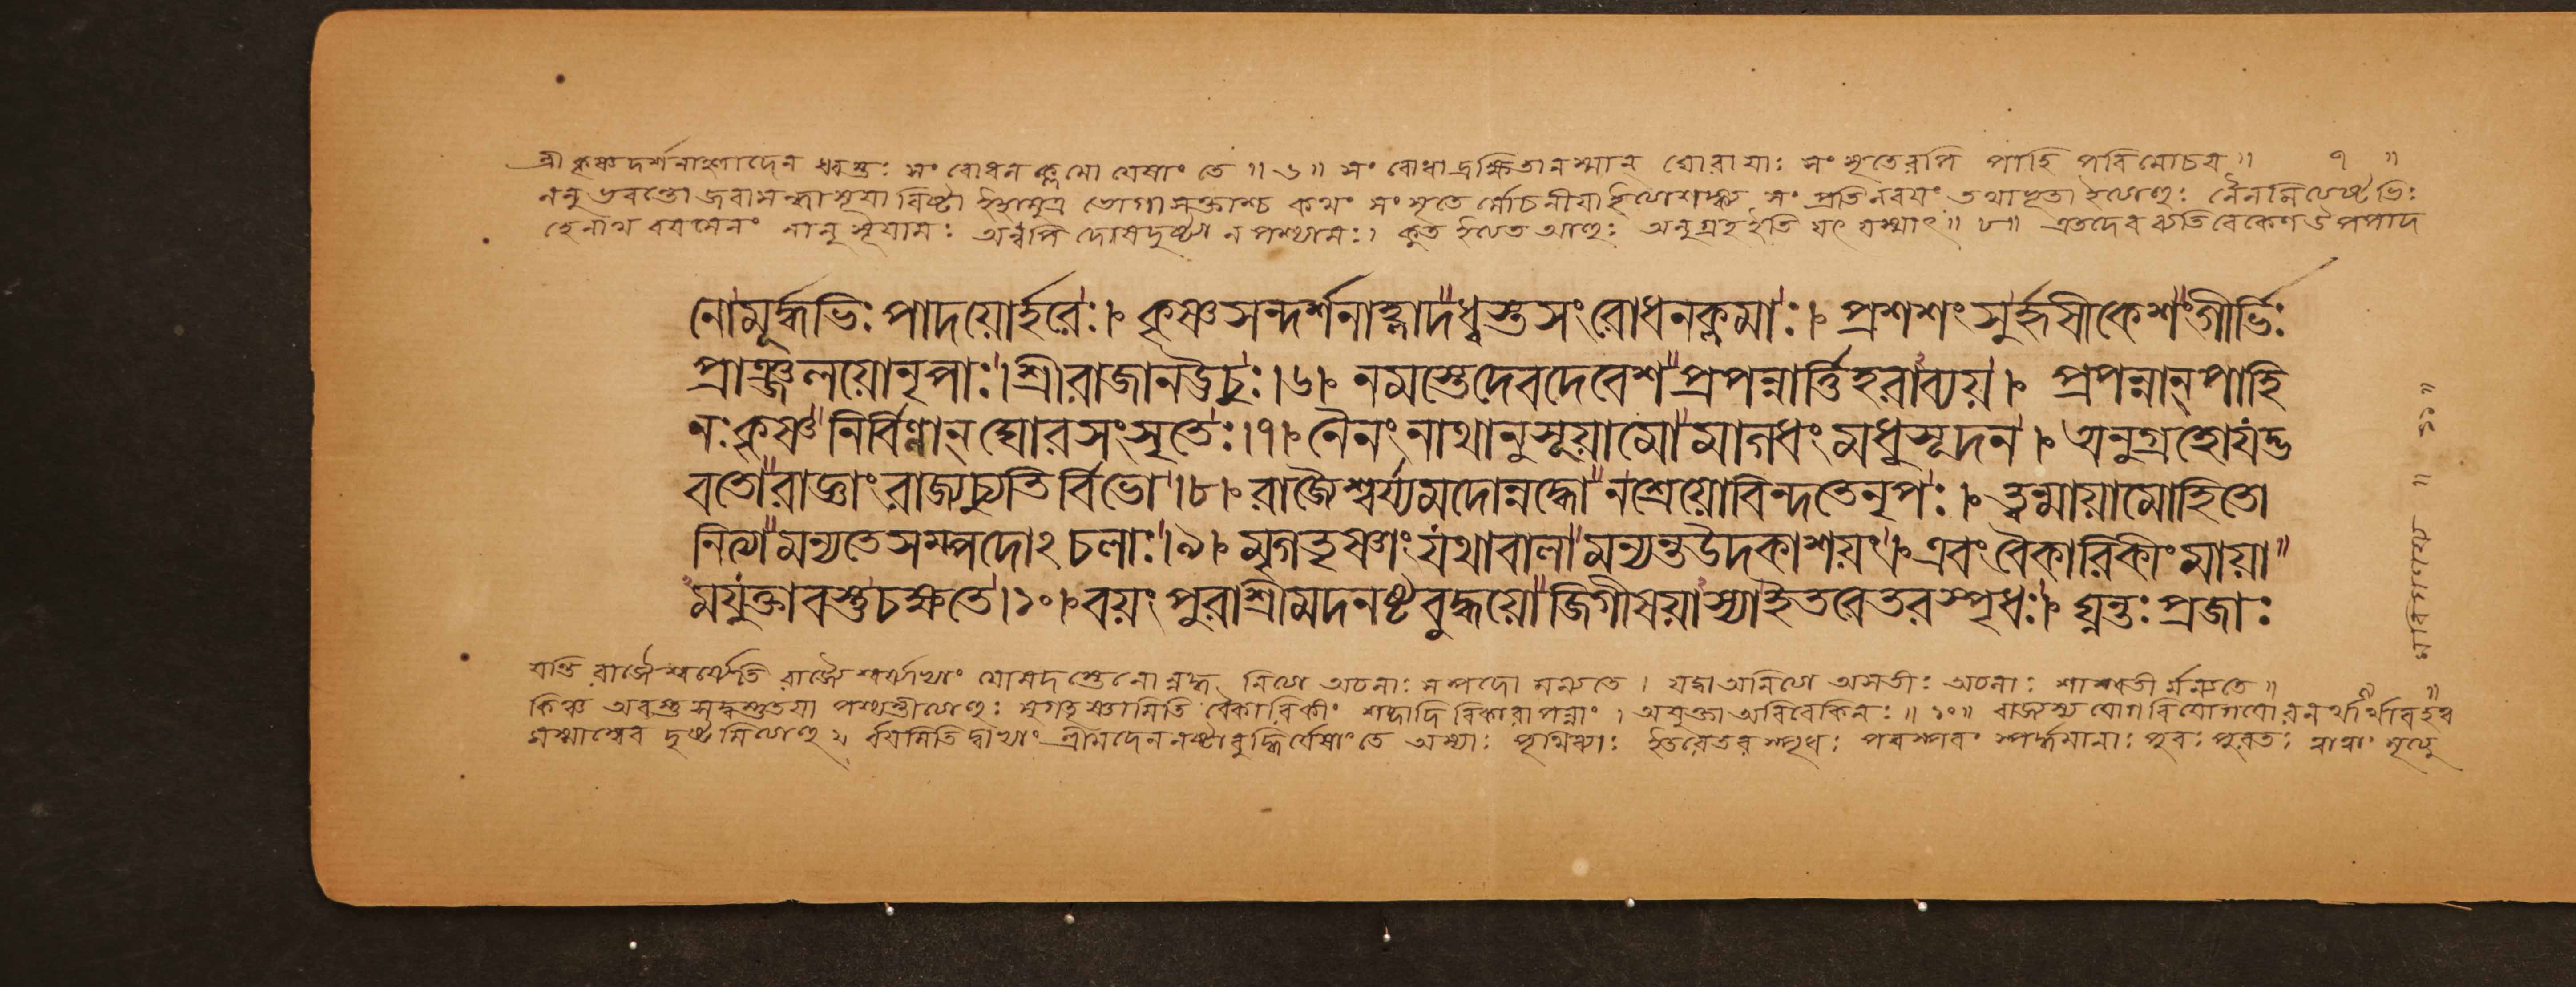 শ্রীকৃষ্ণদর্শনাহ্লাদেন ধ্বস্তঃ সংরোধনক্লমো যেষাং তে ॥ ৬ ॥ সংরোধাদ্রক্ষিতানস্মান্ ঘোরায়াঃ সংসৃতেরপি পাহি পরিমোচয় ॥ ৭ ॥
ননু ভবন্তো জরাসন্ধাসূয়াবিষ্টা ইহামুত্র ভোগাসক্তাশ্চ কথং সংসৃতে র্মোচনীয়া ইত্যাশঙ্ক্য সংপ্রতি নবয়ং তথাভূতা ইত্যাহুঃ নৈনমিত্যষ্টভিঃ
হে নাথ বয়মেনং নানুসূয়ামঃ অন্বপি দোষদৃষ্ট্যা ন পশ্যামঃ। কুত ইত্যত আহুঃ অনুগ্রহ ইতি যৎ যস্মাৎ ॥ ৮ ॥ এতদেব ব্যতিরেকেণ উপপাদ
নোমূর্দ্ধভিঃ পাদয়োর্হরেঃ।৹ কৃষ্ণসন্দর্শনাহ্লাদধ্বস্তসংরোধনক্লমাঃ।৹ প্রশশংসুর্হৃষীকেশংগীর্ভিঃ
প্রাঞ্জলয়োনৃপাঃ।শ্রীরাজানঊচুঃ।৬।৹ নমস্তেদেবদেবেশপ্রপন্নার্ত্তিহরাব্যয়।৹ প্রপন্নান্পাহি
নঃকৃষ্ণনির্বিণ্ণান্ঘোরসংসৃতেঃ।৭।৹ নৈনংনাথানুসূয়ামোমাগধংমধুসূদন।৹ অনুগ্রহোযদ্ভ
বতোরাজ্ঞাংরাজ্যচ্যুতির্বিভো।৮।৹ রাজ্যৈশ্বর্য্যমদোন্নদ্ধোনশ্রেয়োবিন্দতেনৃপঃ।৹ ত্বন্মায়ামোহিতো
নিত্যামন্যতেসম্পদোঽচলাঃ।৯।৹ মৃগতৃষ্ণাংযথাবালামন্যন্তউদকাশয়ং।৹ এবংবৈকারিকীংমায়া
ময়ুক্তাবস্তুচক্ষতে।১০।৹ বয়ংপুরাশ্রীমদনষ্টবুদ্ধয়োজিগীষয়াস্যাইতরেতরস্পৃধঃ।৹ ঘ্নন্তঃপ্রজাঃ
যন্তি রাজ্যৈশ্বর্য্যেতি রাজ্যৈশ্বর্য্যাভ্যাং যোমদস্তেনোন্নদ্ধ নিত্যা অচলাঃ সম্পদো মন্যতে । যদ্বা অনিত্যা অসতীঃ অচলাঃ শাশ্বতী র্মন্যতে ॥
কিঞ্চ অবস্তু সদ্বস্তুতয়া পশ্যন্তীত্যাহুঃ মৃগতৃষ্ণামিতি বৈকারিকীং শব্দাদি বিকারাপন্নাং । অযুক্তা অবিবেকিনঃ ॥ ১০ ॥ রাজ্যস্য যোগবিযোগযোরনর্থার্থাবহত্ব
মস্মাস্বেব দৃষ্টমিত্যাহু র্বয়মিতি দ্বাভ্যাং শ্রীমদেন নষ্টা বুদ্ধির্যেষাং তে অস্যাঃ পৃথিব্যাঃ ইতরেতরস্পৃধঃ পরস্পরং স্পর্দ্ধমানাঃ পুরঃ পুরতঃ মৃত্যু